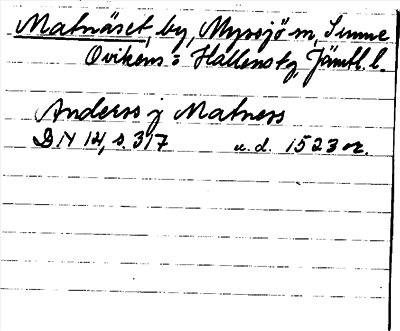 Matnäset, by, Myssjö sn, Sunne
Ovikens o Hallens tg, Jämtl. l.
Anderss j Matness
DN 14, s. 317 u. d. 1523 or.